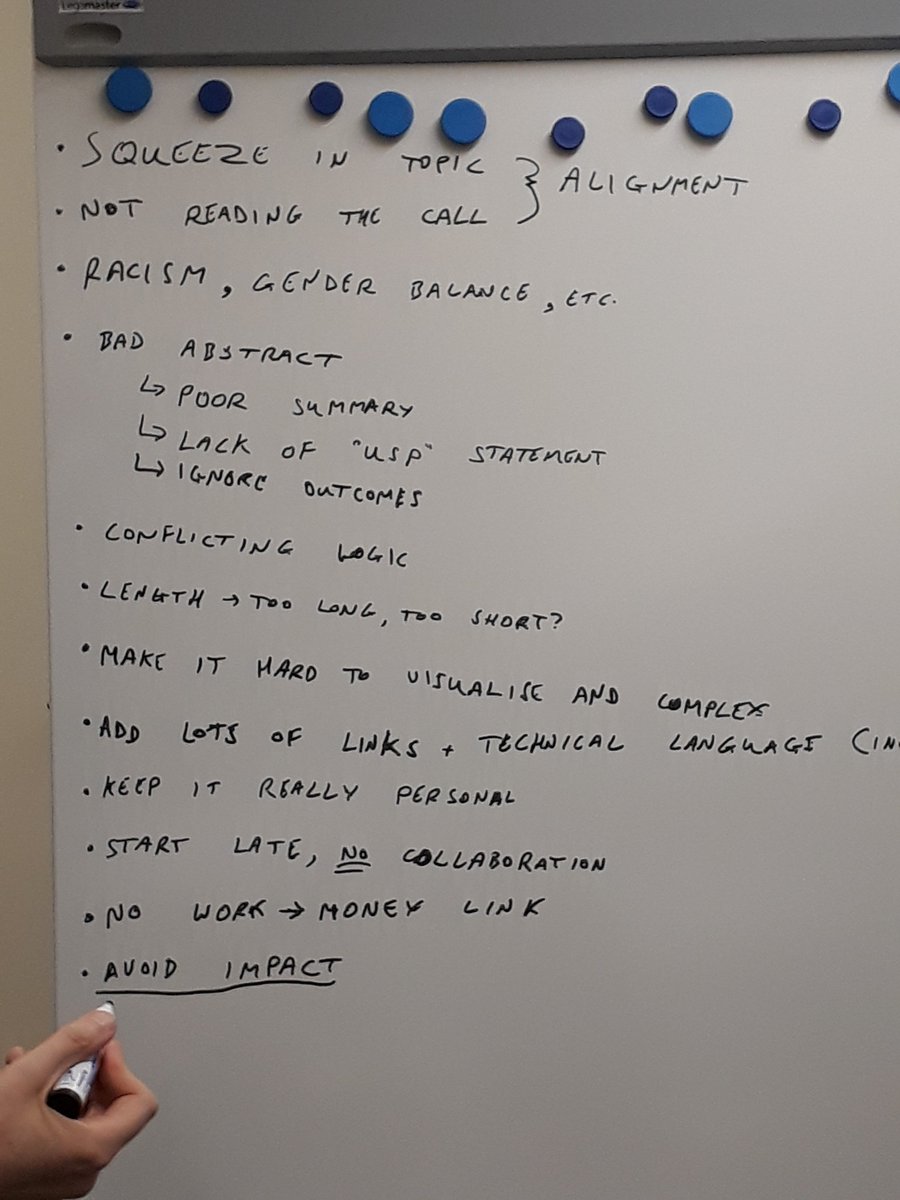 Legamaster
• SQUEEZE IN TOPIC } ALIGNMENT
• NOT READING THE CALL
• RACISM, GENDER BALANCE, ETC.
• BAD ABSTRACT
↳ POOR SUMMARY
↳ LACK OF "USP" STATEMENT
↳ IGNORE OUTCOMES
• CONFLICTING LOGIC
• LENGTH → TOO LONG, TOO SHORT?
• MAKE IT HARD TO VISUALISE AND COMPLEX
• ADD LOTS OF LINKS + TECHNICAL LANGUAGE
• KEEP IT REALLY PERSONAL
• START LATE, NO COLLABORATION
• NO WORK → MONEY LINK
• AVOID IMPACT